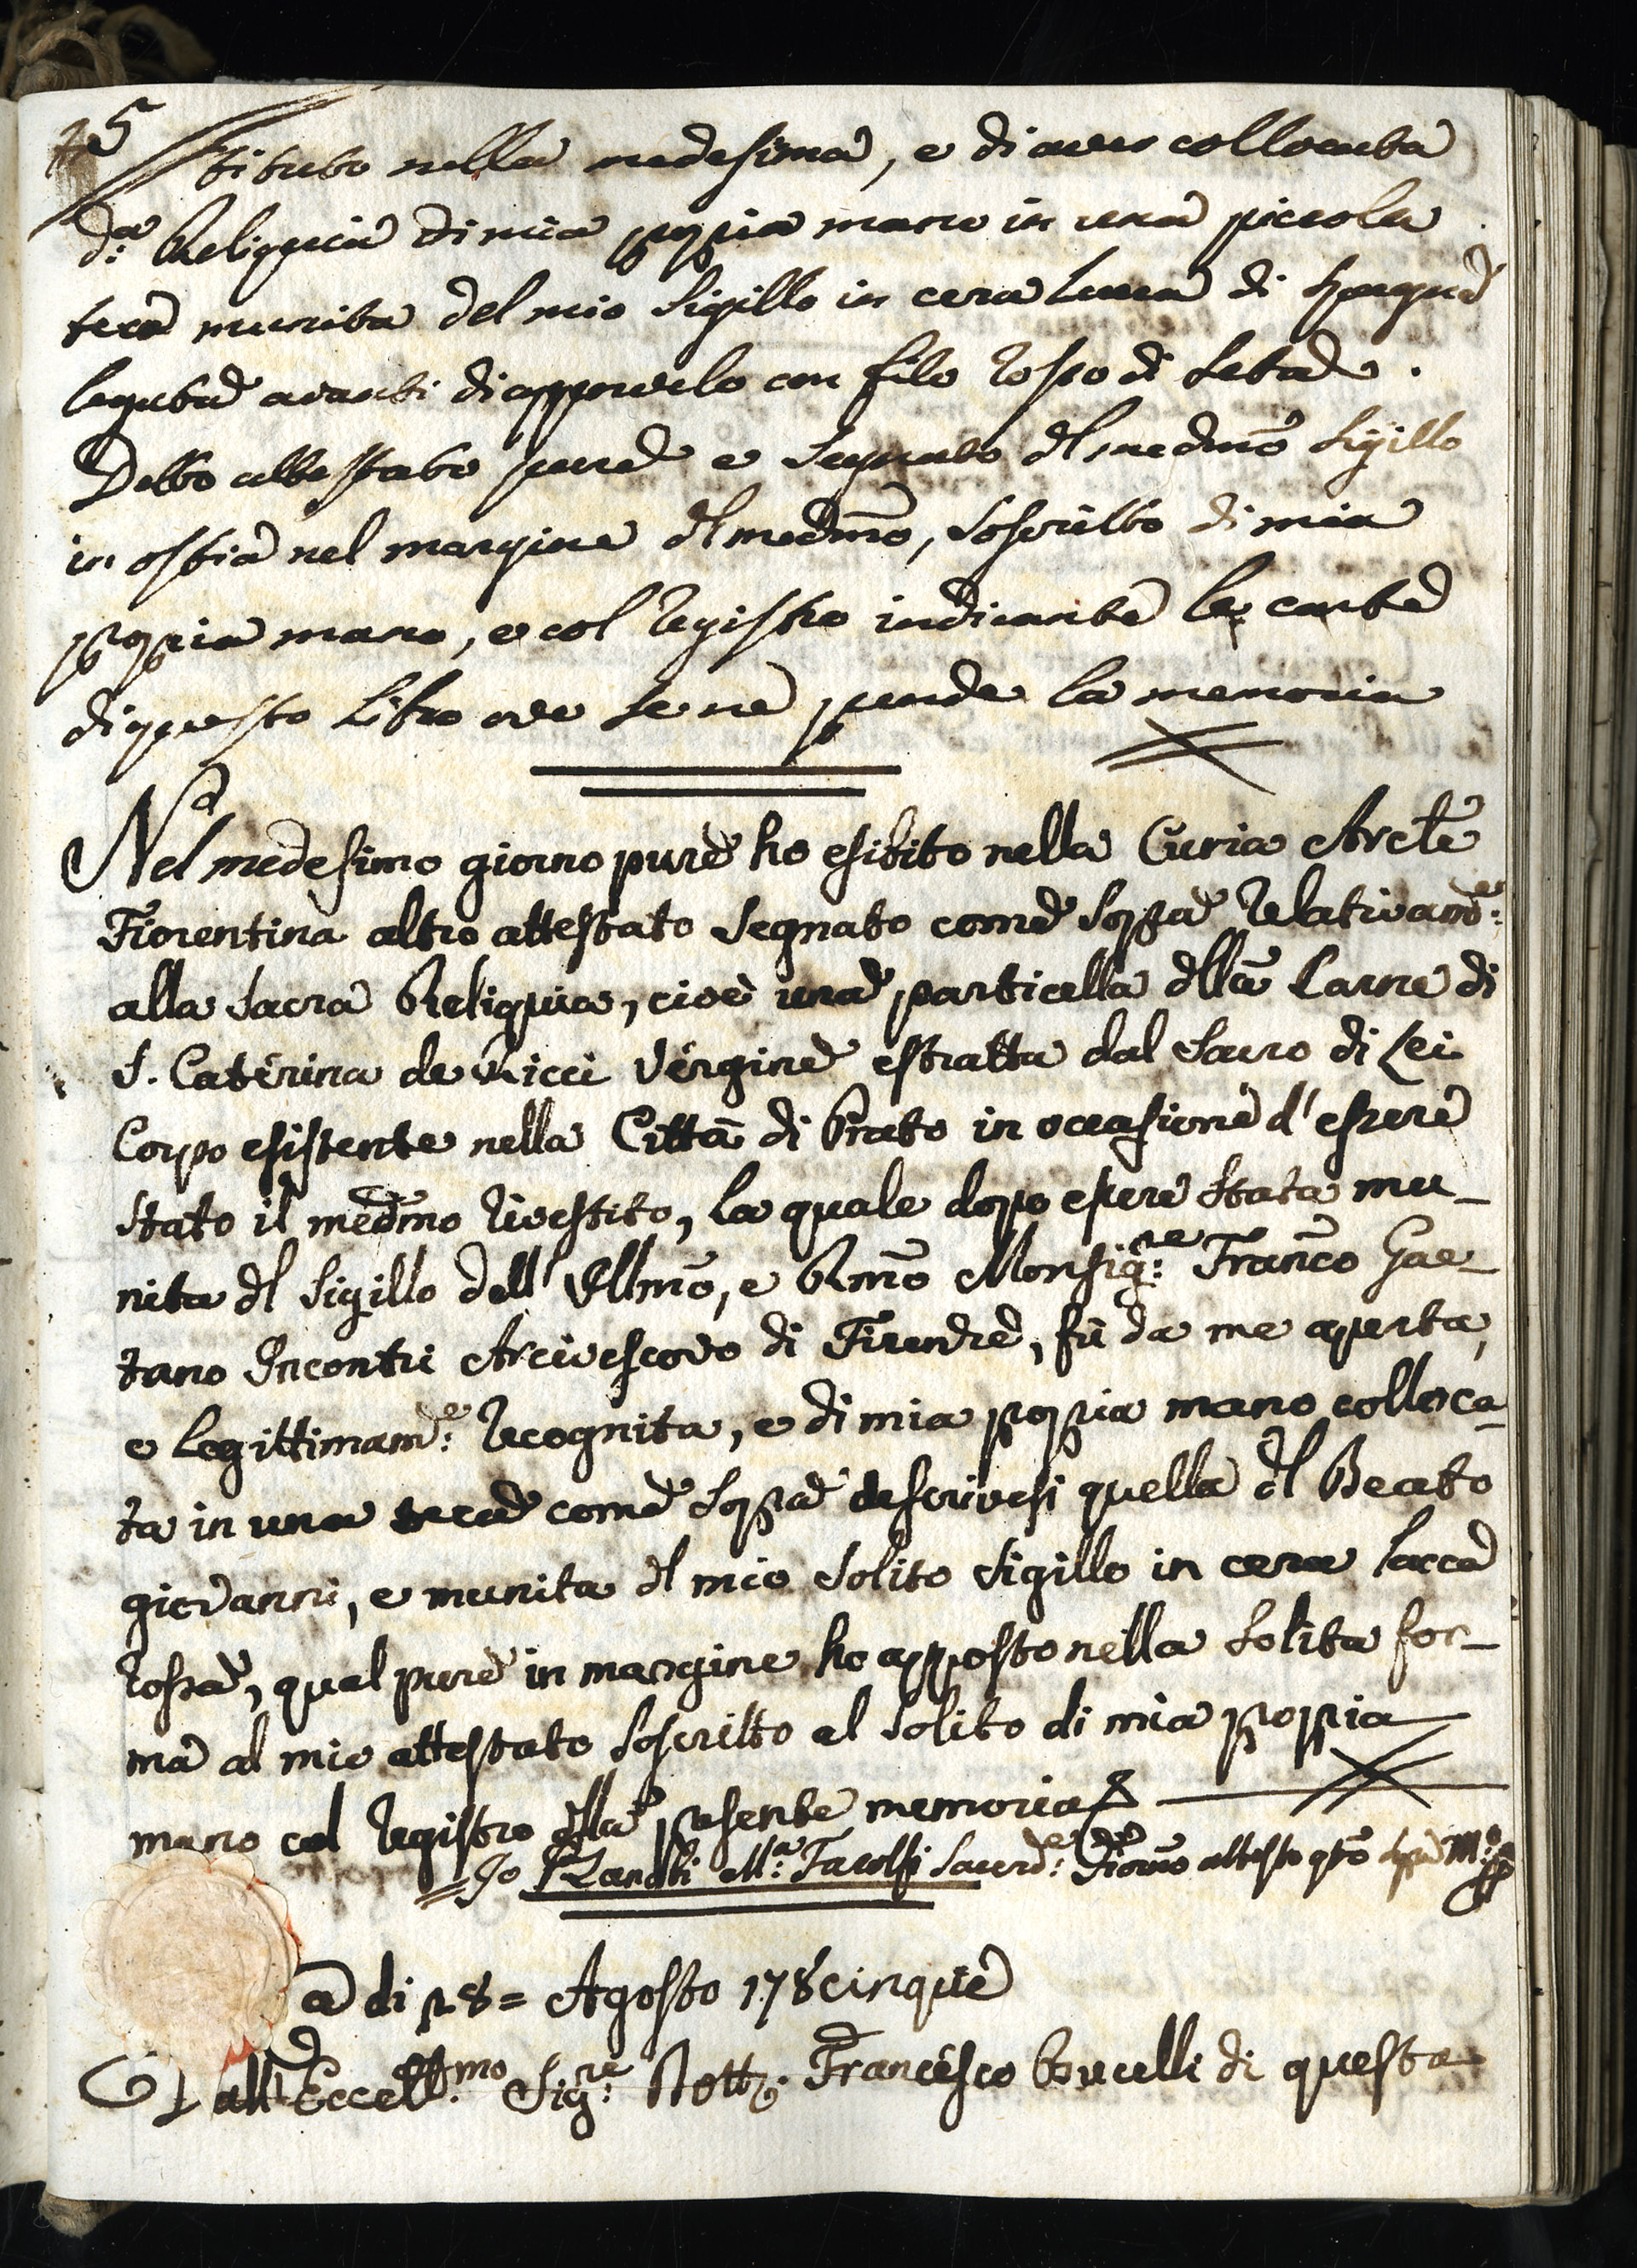 45
tituto nella medesima, e di aver collocata
d:ª Reliquia di mia ppria mano in una piccola
teca munita del mio Sigillo in cera lacca di Spagna
legata avanti di apporvelo con filo rosso di Seta.
Detto attestato pure è Segnato dl medmo Sigillo
in ostia nel margine dl medmo, Soscritto di mia
ppria mano, e col Registro indicante le carte
di questo Libro ove se ne prende la memoria
Nel medesimo giorno pure ho esibito nella Curia Arcile
Fiorentina altro attestato Segnato come Sopra relativamᵉ:
alla Sacra Reliquia, cioè una particella dlla Carne di
S. Caterina de Ricci Vergine estratta dal Sacro di Lei
Corpo esistente nella Città di Prato in occasione d'essere
Stato il medmo rivestito, la quale dopo essere Stata mu-
nita dl Sigillo dell' Illmo, e Rmo Monsigʳᵉ: Franco Gae-
tano Incontri Arcivescovo di Firenze, fù da me aperta,
e legittimamᵉ: recognita, e di mia ppria mano colloca-
ta in una teca come Sopra descrivesi quella dl Beato
Giovanni, e munita dl mio Solito Sigillo in cera lacca
rossa, qual pure in margine ho apposto nella Solita for-
ma al mio attestato Soscritto al Solito di mia ppria
mano col registro dlla presente memoria
Io Zanobi Mª: Sacerdᵉ: Fiorno attesto qto Mº: ppª
a di 28= Agosto 178cinque
all' Eccellᵐᵒ. Sigʳᵉ: Dott: Francesco Bucelli di questa